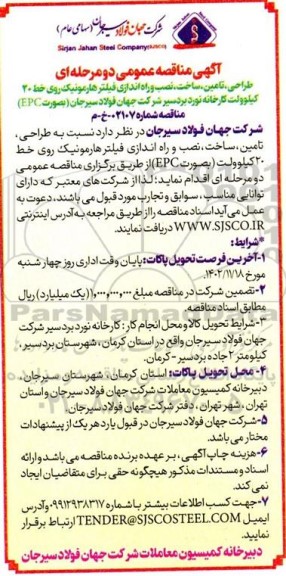 شرکت جهان فولاد سیرجان (سهامی عام)
Sirjan Jahan Steel Company (SJSCO)
آگهی مناقصه عمومی دو مرحله ای
طراحی، تامین، ساخت، نصب و راه اندازی فیلتر هارمونیک روی خط ۲۰
کیلوولت کارخانه نورد بردسیر شرکت جهان فولاد سیرجان (بصورت EPC)
مناقصه شماره ۰۲۱۰۷-خ-م
شرکت جهان فولاد سیرجان در نظر دارد نسبت به طراحی،
تامین، ساخت، نصب و راه اندازی فیلتر هارمونیک روی خط
۲۰ کیلوولت (بصورت EPC) از طریق برگزاری مناقصه عمومی
دو مرحله ای اقدام نماید؛ لذا از شرکت های معتبر که دارای
توانایی مناسب، سوابق و تجارب مورد قبول می باشند، دعوت به
عمل می آید اسناد مناقصه را از طریق مراجعه به آدرس اینترنتی
WWW.SJSCO.IR دریافت نمایند.
*شرایط:
۱-آخرین فرصت تحویل پاکات: پایان وقت اداری روز چهار شنبه
مورخ ۱۴۰۲/۱۱/۱۸.
۲-تضمین شرکت در مناقصه مبلغ ۱,۰۰۰,۰۰۰,۰۰۰ (یک میلیارد) ریال
مطابق اسناد مناقصه.
۳-شرایط تحویل کالا و محل انجام کار: کارخانه نورد بردسیر شرکت
جهان فولاد سیرجان واقع در استان کرمان، شهرستان بردسیر،
کیلومتر ۲ جاده بردسیر - کرمان.
۴- محل تحویل پاکات: استان کرمان، شهرستان سیرجان،
دبیرخانه کمیسیون معاملات شرکت جهان فولاد سیرجان و استان
تهران، شهر تهران، دفتر شرکت جهان فولاد سیرجان.
۵-شرکت جهان فولاد سیرجان در قبول یا رد هر یک از پیشنهادات
مختار می باشد.
۶-هزینه چاپ آگهی، بر عهده برنده مناقصه می باشد و ارائه
اسناد و مستندات مذکور هیچگونه حقی برای متقاضیان ایجاد
نمی کند.
۷-جهت کسب اطلاعات بیشتر با شماره ۰۹۹۱۲۹۳۸۳۱۷ و آدرس
ایمیل TENDER@SJSCOSTEEL.COM ارتباط برقرار
نمایید.
دبیرخانه کمیسیون معاملات شرکت جهان فولاد سیرجان